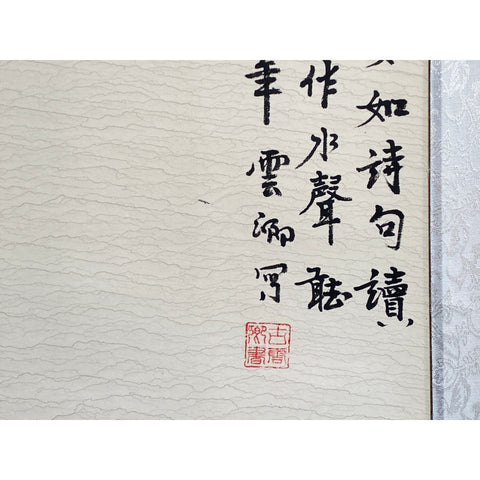 如詩句讀
作水聲聽
年雲卿寫